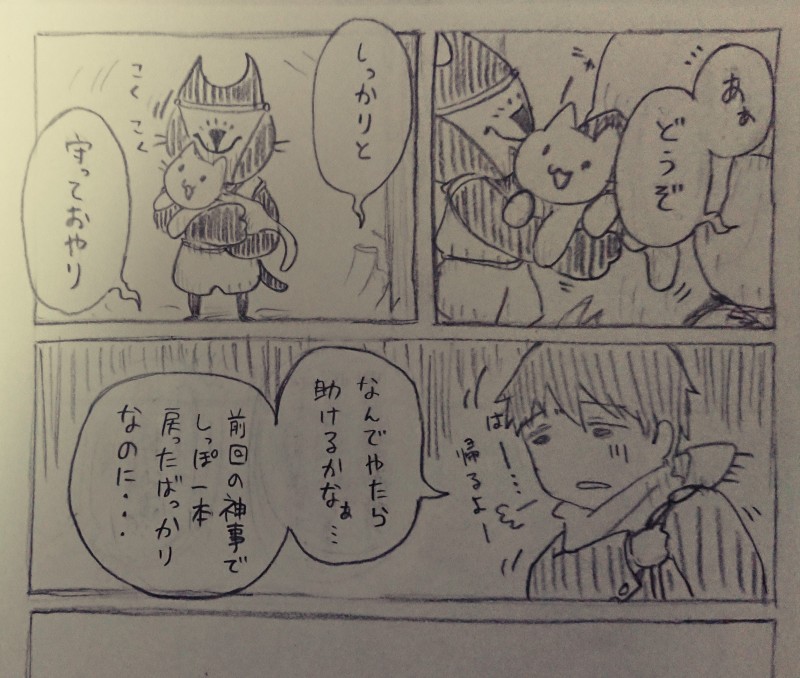 ニャ
あぁ
どうぞ
しっかりと
こく
こく
守っておやり
はー…
帰るよー
なんでやたら
助けるかなぁ…
前回の神事で
しっぽ一本
戻ったばっかり
なのに・・・